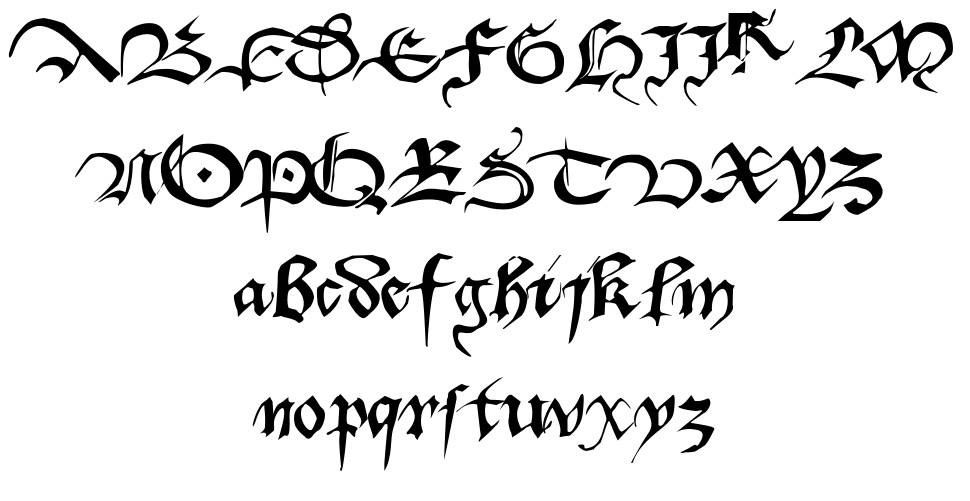 ABCDEFGHIJK LM
NOPQRSTUVXYZ
abcdefghijklm
nopqrstuvxyz